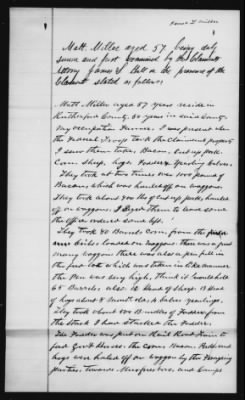 Matt. Miller aged 57 being duly
sworn and first examined by the Claimants
Attorney James J. Ball in the presence of the
Claimant stated as follows
Matt. Miller aged 57 years reside in
Rutherford County, 50 years in said County
My occupation Farmer. I was present when
the Federal Troops took the Claimants property
I saw them take, Bacon, cut up pork,
Corn, sheep, hogs, Fodder & yearling calves.
They took at two times over 1000 pounds of
Bacon, which was hauled off on waggons.
They took about 700 lbs of cut up pork, hauled
off on waggons. I them to leave some
the officer ordered some left.
They took 40 Barrels corn, from the
cribs loaded on waggons. there was a great
many waggons there was also a pen full in
the lot which was taken in like manner
the Pen was very high, I think it would hold
65 Barrels. also 12 head of sheep 13 head
of hogs about 8 month old & calves yearlings.
They took about 500 Bundles of Fodder from
the stack I had stacked the Fodder.
The Fodder was put on
feed Govt Horses. the corn, Bacon, Pork and
hogs were hauled off on waggons by the Foraging
parties, towards Murfreesboro, and Camps